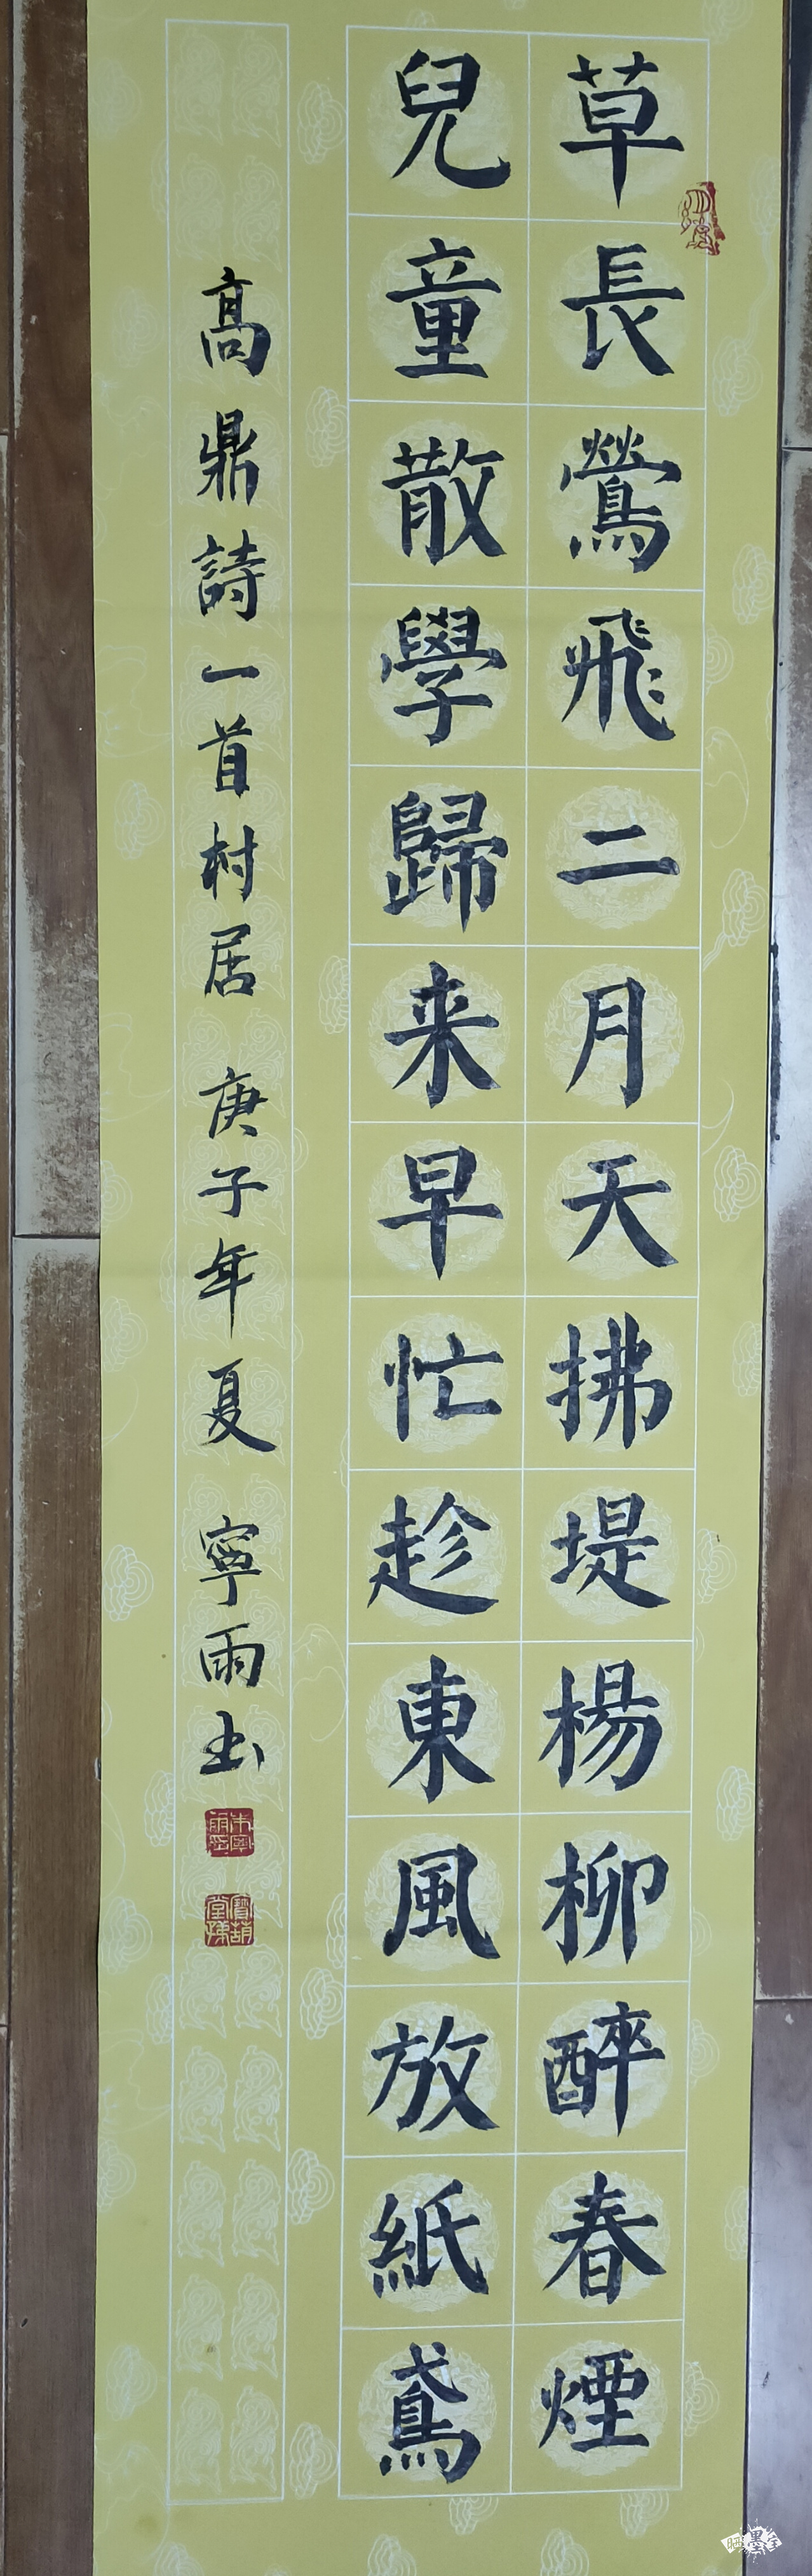 草長鶯飛二月天拂堤楊柳醉春煙
兒童散學歸来早忙趁東風放紙鳶
高鼎詩一首村居 庚子年夏 寧雨书